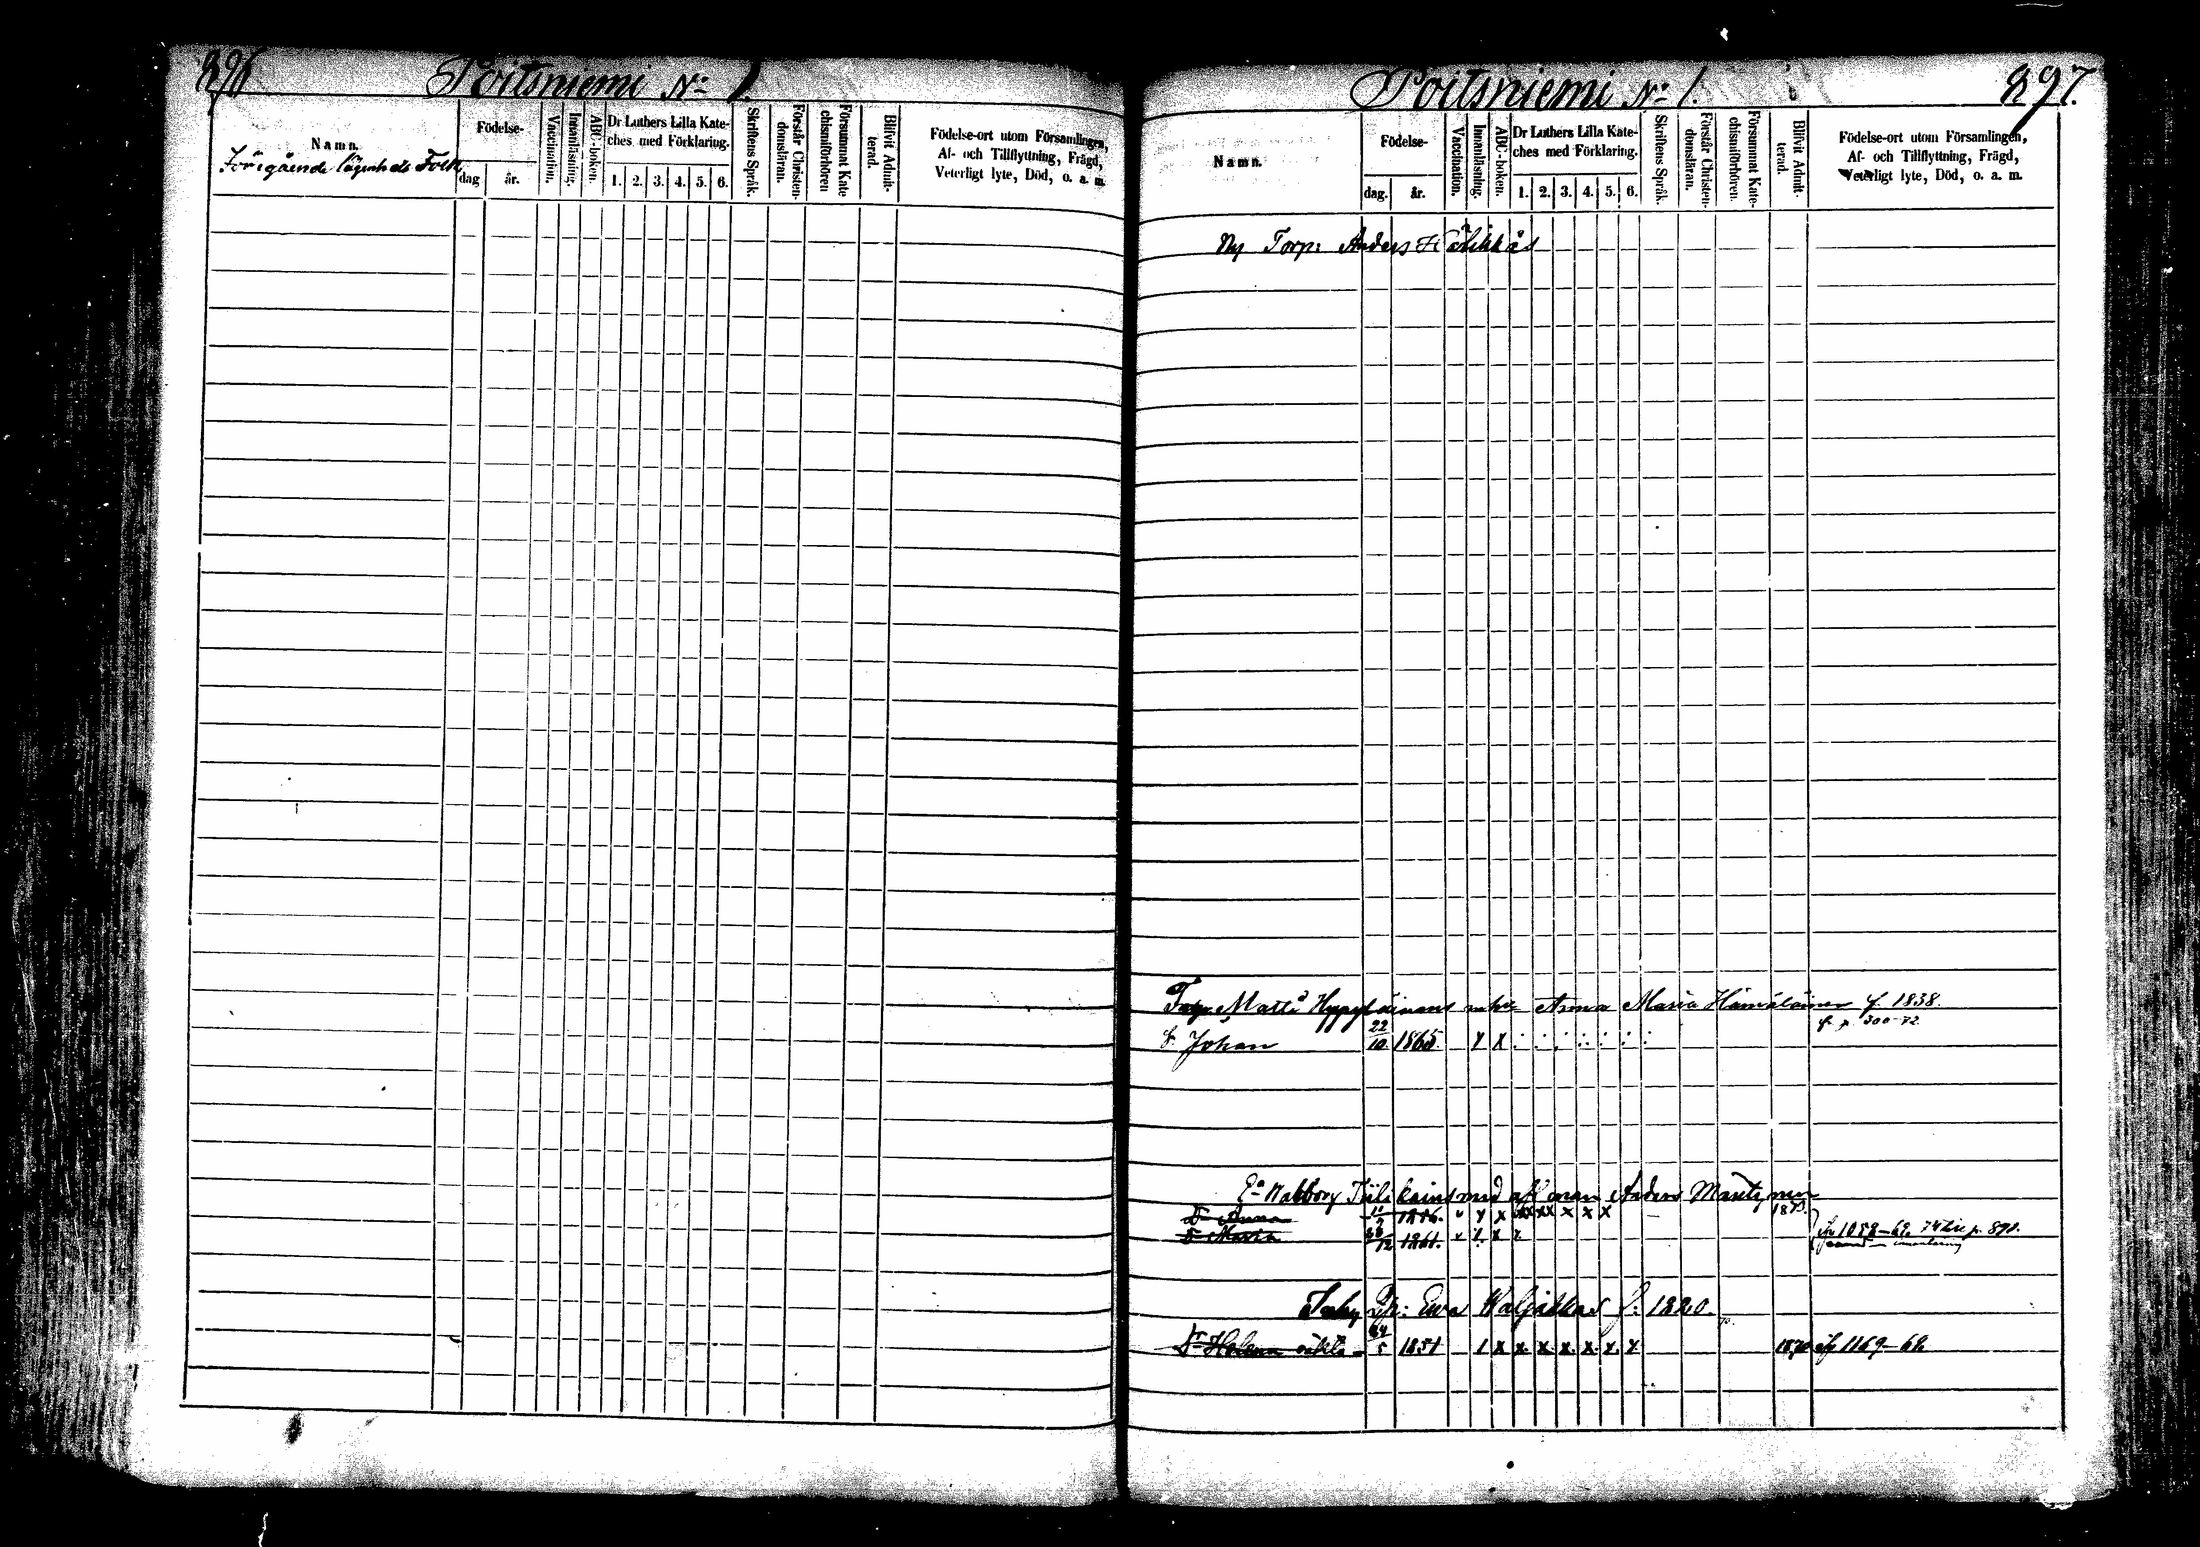 896
Poitsniemi No 1
Namn.
Förigående lägenhets Folk
Födelse-
dag
år.
Vaccination.
Innanläsning.
ABC-boken.
Dr Luthers Lilla Kate-
ches med Förklaring.
1. 2. 3. 4. 5. 6.
Skriftens Språk.
Förstår Christen-
domsläran.
Försummat Kate
chismiförhören
Blifvit Admit-
terad.
Födelse-ort utom Församlingen,
Af- och Tillflyttning, Frägd,
Veterligt lyte, Död, o. a. m.
Poitsniemi No 1.
897.
Namn.
Födelse-
dag.
år.
Vaccination.
Innanläsning.
ABC-boken.
Dr Luthers Lilla Kate-
ches med Förklaring.
1. 2. 3. 4. 5. 6.
Skriftens Språk.
Förstår Christen-
domsläran.
Försummat Kate-
chismiförhören.
Blifvit Admit
terad.
Födelse-ort utom Församlingen,
Af- och Tillflyttning, Frägd,
Veterligt lyte, Död, o. a. m.
Ny Torp: Anders
Matts enka Anna Maria Hämäläinen f. 1838.
f. p. 300-72.
S. Johan 22/10 1865 x x
Ea Walborg med aft man Anders Mantynen
Dr Anna 1846. v x x xx xx x x x 1873.
Dr Maria 1861. v x x x
1058-69. p. 890.
Ewa f: 1820.
Dr Helena oäkta 24/5 1851 1 x x x x x x x 1870 if 1169-68